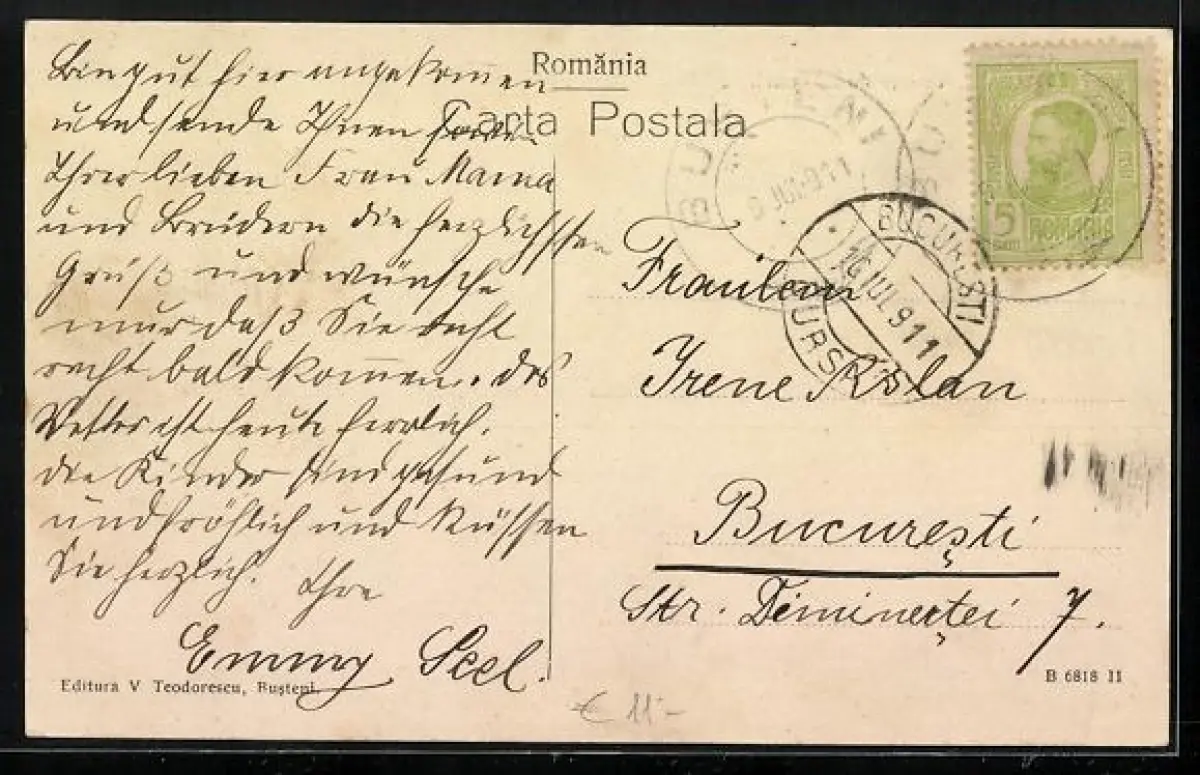 România
Carta Postala
Bin gut hier angekommen
und sende Ihnen
Ihrer lieben Frau Mama
und Brüdern die herzlichsten
Grüß und wünsche
nur daß Sie recht
recht bald kommen. das
Wetter ist heute herrlich.
die Kinder sind gesund
und fröhlich und küssen
Sie herzlich. Ihre
Emmy Seel.
Editura V Teodorescu, Bușteni.
BUȘTENI
JUL 911
5
BANI
ROMANIA
BUCUREȘTI
16 IUL 911
CURSA
Fräulein
Irene
București
Str. 7.
B 6818 II
€ 11.-